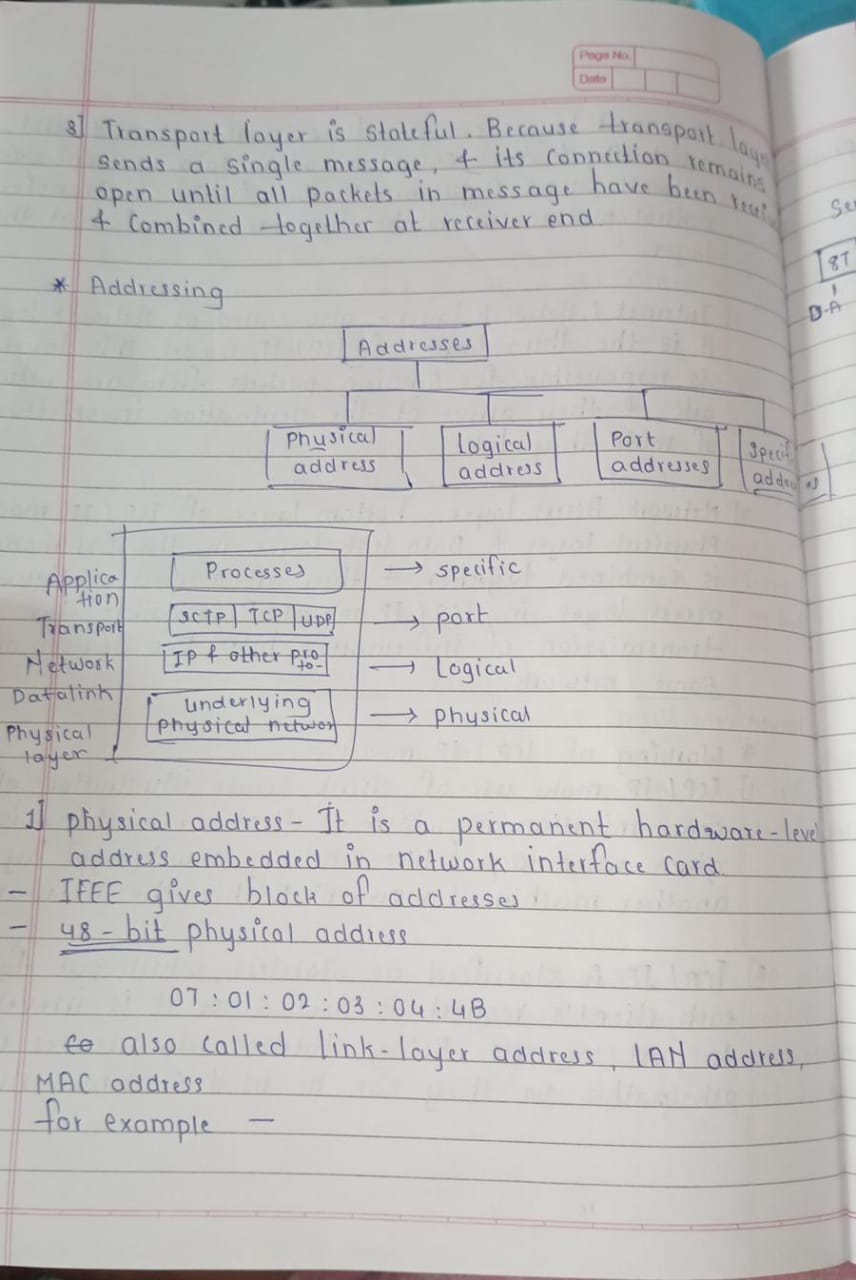 Page No.
Date
3] Transport layer is stateful. Because transport laye
sends a single message, & its connection remains
open until all packets in message have been
& combined together at receiver end
* Addressing
Addresses
Physical address
Logical address
Port addresses
Specif addresses
Application
Processes → specific
Transport
SCTP | TCP | UDP → port
Network
IP & other proto- → Logical
Datalink
Physical layer
underlying physical networ → physical
1] physical address - It is a permanent hardware-level
address embedded in network interface card.
- IEEE gives block of addresses
- 48-bit physical address
07 : 01 : 02 : 03 : 04 : 4B
also called link-layer address, LAN address,
MAC address
for example —
Ser
8T
D-A